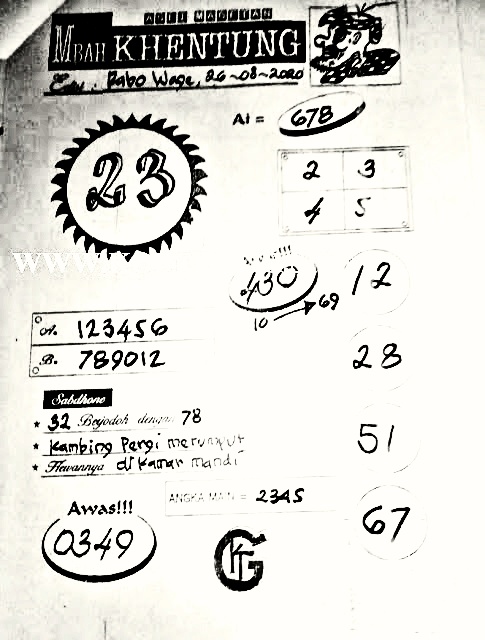 ASLI MAGETAN
MBAH KHENTUNG
Edisi : Rabo Wage, 26-08-2020
AI = 678
23
2 3
4 5
www.
430
10 → 69
12
A. 123456
B. 789012
28
Sabdhone
* 32 Bejodoh dengan 78
* Kambing Pergi merumput
* Hewannya di kamar mandi
51
ANGKA MAIN = 2345
Awas!!!
0349
67
KTG